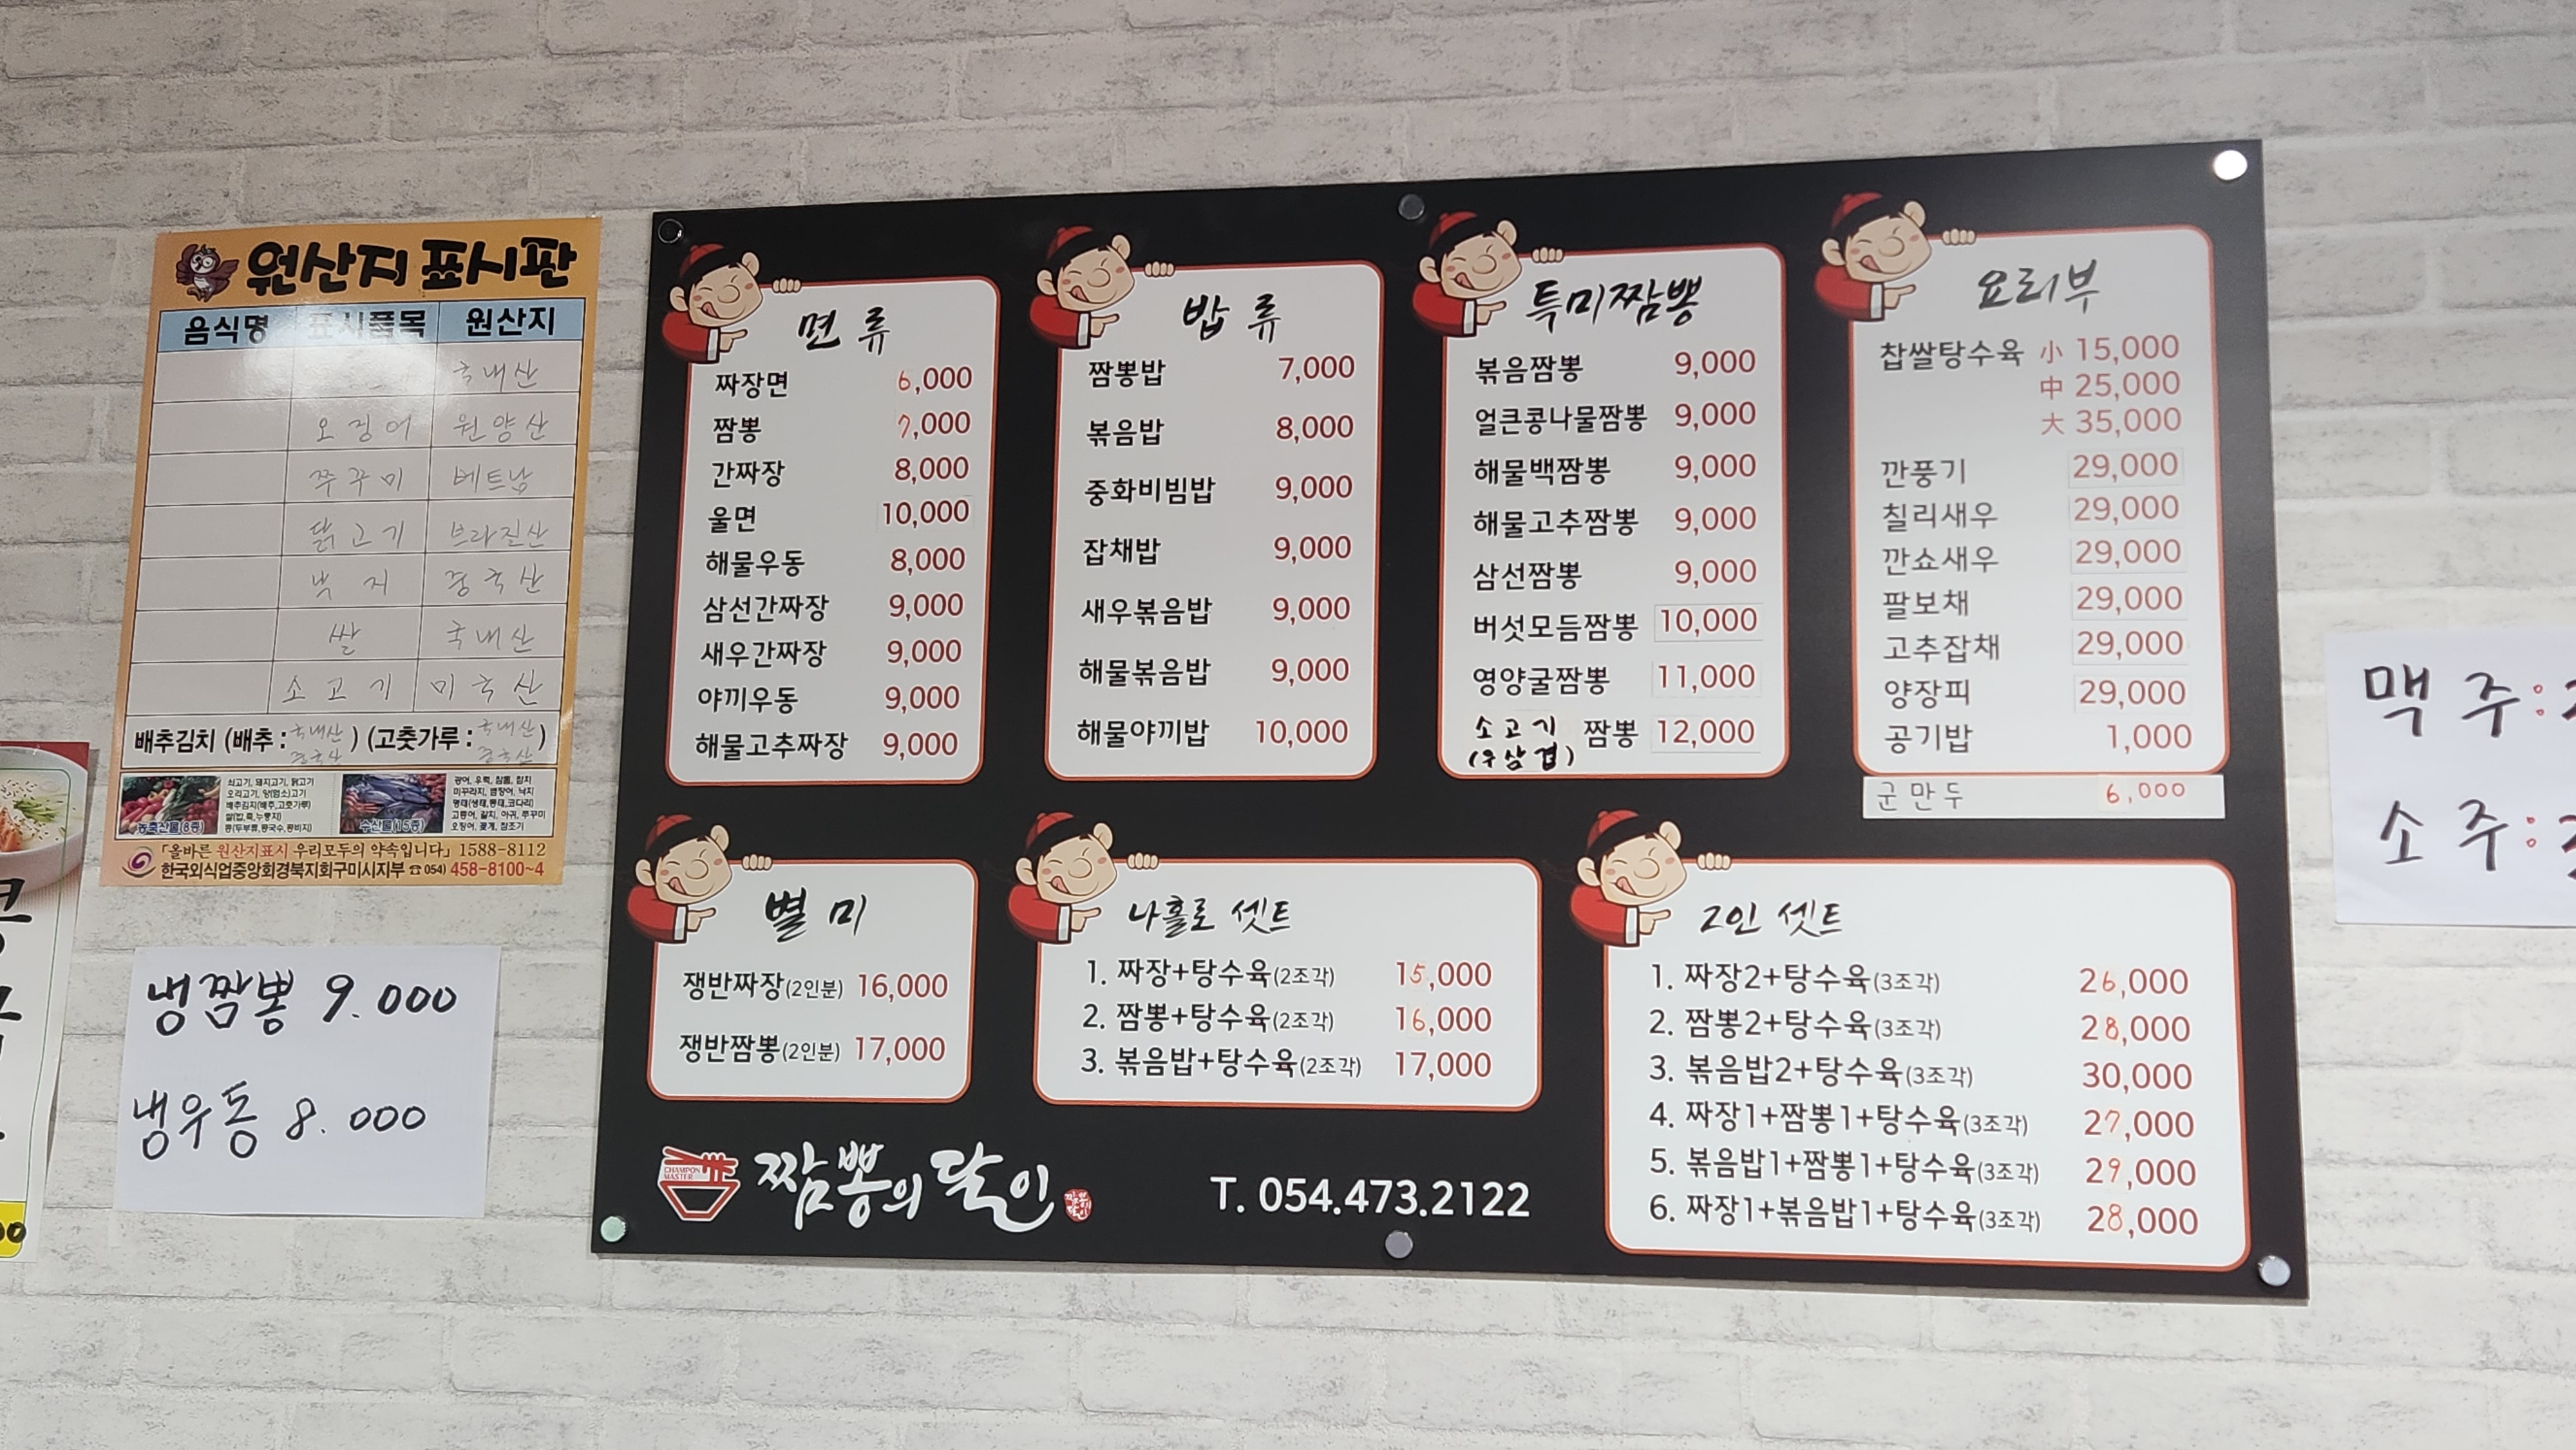 원산지 표시판
음식명 표시품목 원산지
국내산
오징어 원양산
쭈꾸미 베트남
닭고기 브라질산
낙지 중국산
쌀 국내산
소고기 미국산
배추김치 (배추 : 국내산 중국산) (고춧가루 : 국내산 중국산)
쇠고기, 돼지고기, 닭고기
오리고기, 양(염소)고기
배추김치(배추,고춧가루)
쌀(밥,죽,누룽지)
콩(두부류,콩국수,콩비지)
농축산물(8종)
광어, 우럭, 참돔, 참치
미꾸라지, 뱀장어, 낙지
명태(생태,동태,코다리)
고등어, 갈치, 아귀, 쭈꾸미
오징어, 꽃게, 참조기
수산물(15종)
「올바른 원산지표시 우리모두의 약속입니다」 1588-8112
한국외식업중앙회경북지회구미시지부 ☎054) 458-8100~4
냉짬뽕 9.000
냉우동 8.000
면류
짜장면 6,000
짬뽕 7,000
간짜장 8,000
울면 10,000
해물우동 8,000
삼선간짜장 9,000
새우간짜장 9,000
야끼우동 9,000
해물고추짜장 9,000
밥류
짬뽕밥 7,000
볶음밥 8,000
중화비빔밥 9,000
잡채밥 9,000
새우볶음밥 9,000
해물볶음밥 9,000
해물야끼밥 10,000
특미짬뽕
볶음짬뽕 9,000
얼큰콩나물짬뽕 9,000
해물백짬뽕 9,000
해물고추짬뽕 9,000
삼선짬뽕 9,000
버섯모듬짬뽕 10,000
영양굴짬뽕 11,000
소고기(우삼겹) 짬뽕 12,000
요리부
찹쌀탕수육 小 15,000
中 25,000
大 35,000
깐풍기 29,000
칠리새우 29,000
깐쇼새우 29,000
팔보채 29,000
고추잡채 29,000
양장피 29,000
공기밥 1,000
군만두 6,000
별미
쟁반짜장(2인분) 16,000
쟁반짬뽕(2인분) 17,000
나홀로 셋트
1. 짜장+탕수육(2조각) 15,000
2. 짬뽕+탕수육(2조각) 16,000
3. 볶음밥+탕수육(2조각) 17,000
2인 셋트
1. 짜장2+탕수육(3조각) 26,000
2. 짬뽕2+탕수육(3조각) 28,000
3. 볶음밥2+탕수육(3조각) 30,000
4. 짜장1+짬뽕1+탕수육(3조각) 27,000
5. 볶음밥1+짬뽕1+탕수육(3조각) 29,000
6. 짜장1+볶음밥1+탕수육(3조각) 28,000
CHAMPON
MASTER
짬뽕의달인
T. 054.473.2122
맥주:
소주: